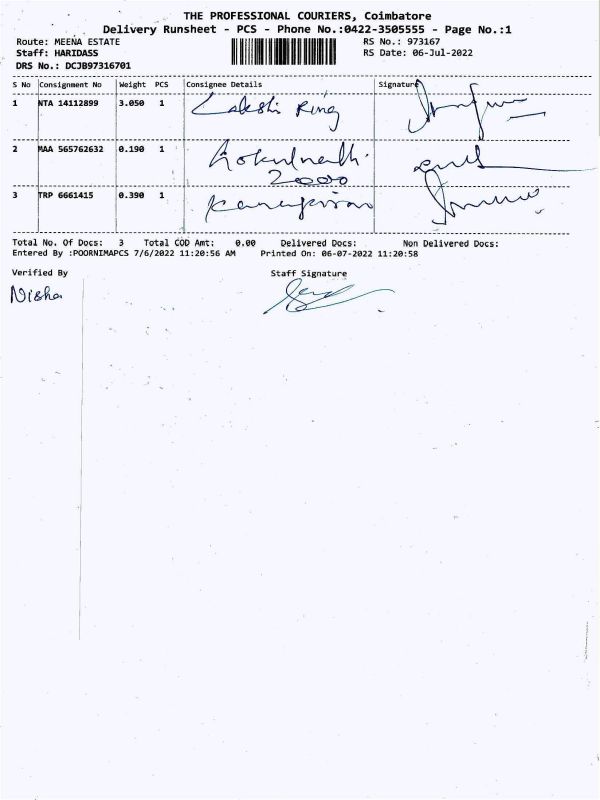 THE PROFESSIONAL COURIERS, Coimbatore
Delivery Runsheet - PCS - Phone No.:0422-3505555 - Page No.:1
Route: MEENA ESTATE RS No.: 973167
Staff: HARIDASS RS Date: 06-Jul-2022
DRS No.: DCJB97316701
S No Consignment No Weight PCS Consignee Details Signature
1 NTA 14112899 3.050 1 Lakshi Ring
2 MAA 565762632 0.190 1 Gokulnath.
2000
3 TRP 6661415 0.390 1
Total No. Of Docs: 3 Total COD Amt: 0.00 Delivered Docs: Non Delivered Docs:
Entered By :POORNIMAPCS 7/6/2022 11:20:56 AM Printed On: 06-07-2022 11:20:58
Verified By Staff Signature
Nisha